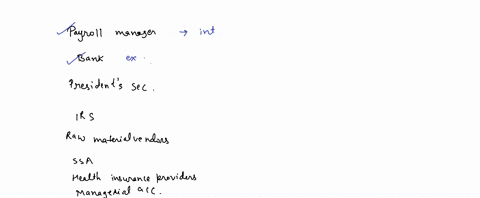 Payroll manager → int
Bank ex.
President's sec.
IRS
Raw material vendors
SSA
Health insurance providers
Managerial acc.